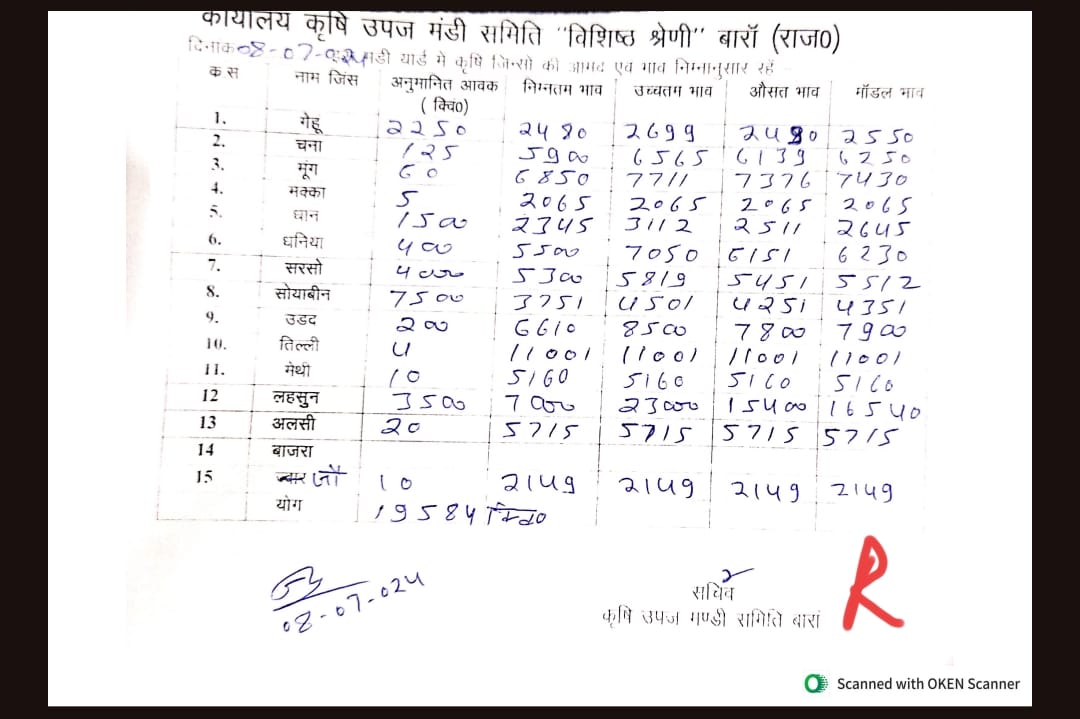 कार्यालय कृषि उपज मंडी समिति "विशिष्ठ श्रेणी" बारॉ (राज0)
दिनांक 08-07-024 मंडी यार्ड मे कृषि जिन्सो की आमद एवं भाव निम्नानुसार रहें
क.स नाम जिंस अनुमानित आवक (क्वि0) निम्नतम भाव उच्चतम भाव औसत भाव मॉडल भाव
1. गेहू 2250 2480 2699 2490 2550
2. चना 125 5900 6565 6139 6250
3. मूंग 60 6850 7711 7376 7430
4. मक्का 5 2065 2065 2065 2065
5. धान 1500 2345 3112 2511 2645
6. धनिया 400 5500 7050 6151 6230
7. सरसो 4000 5300 5819 5451 5512
8. सोयाबीन 7500 3751 4501 4251 4351
9. उडद 200 6610 8500 7800 7900
10. तिल्ली 4 11001 11001 11001 11001
11. मेथी 10 5160 5160 5160 5160
12 लहसुन 3500 7000 23000 15400 16540
13 अलसी 20 5715 5715 5715 5715
14 बाजरा
15 ज्वार जौ 10 2149 2149 2149 2149
योग 19584 क्वि0
08-07-024
सचिव
कृषि उपज मण्डी समिति बारां
R
Scanned with OKEN Scanner